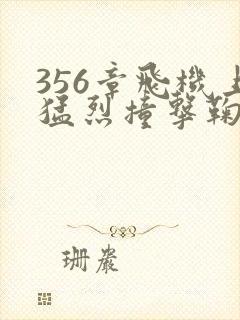 356章飛機上
猛烈撞擊鞠
珊嚴